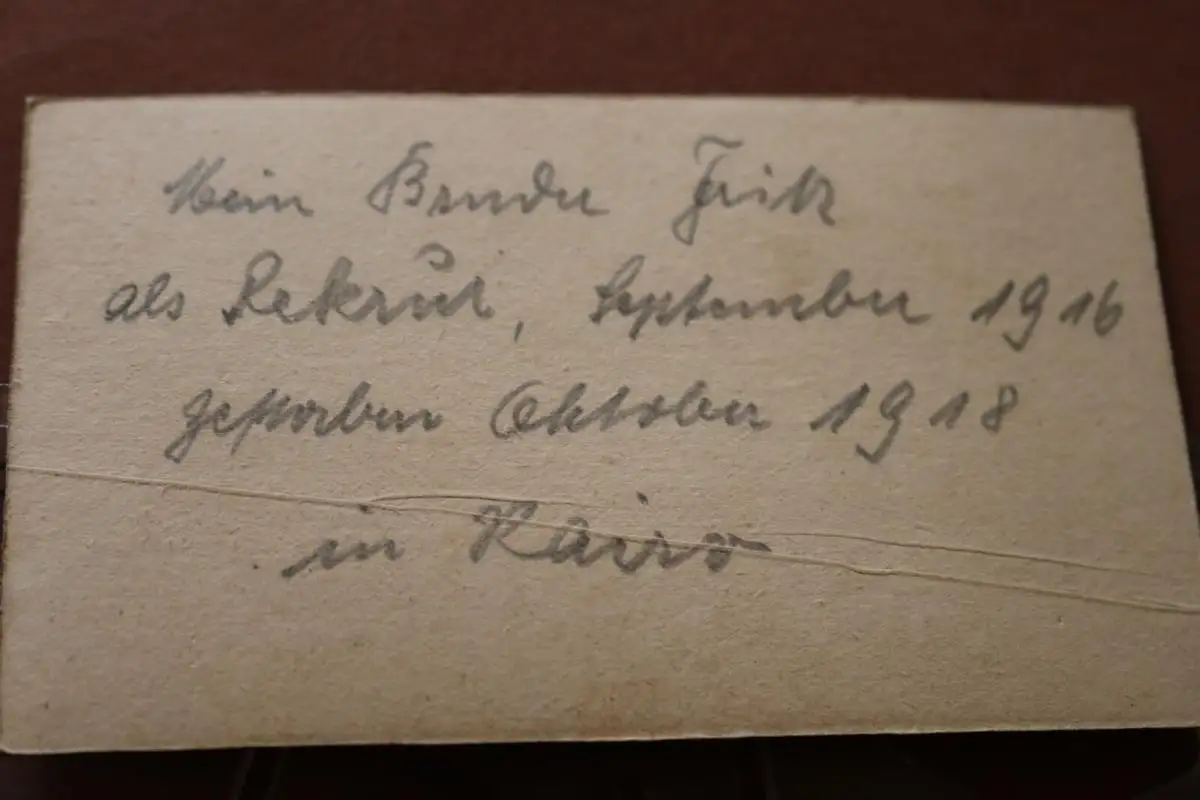 Mein Bruder Fritz
als Rekrut, September 1916
gestorben Oktober 1918
in Kairo